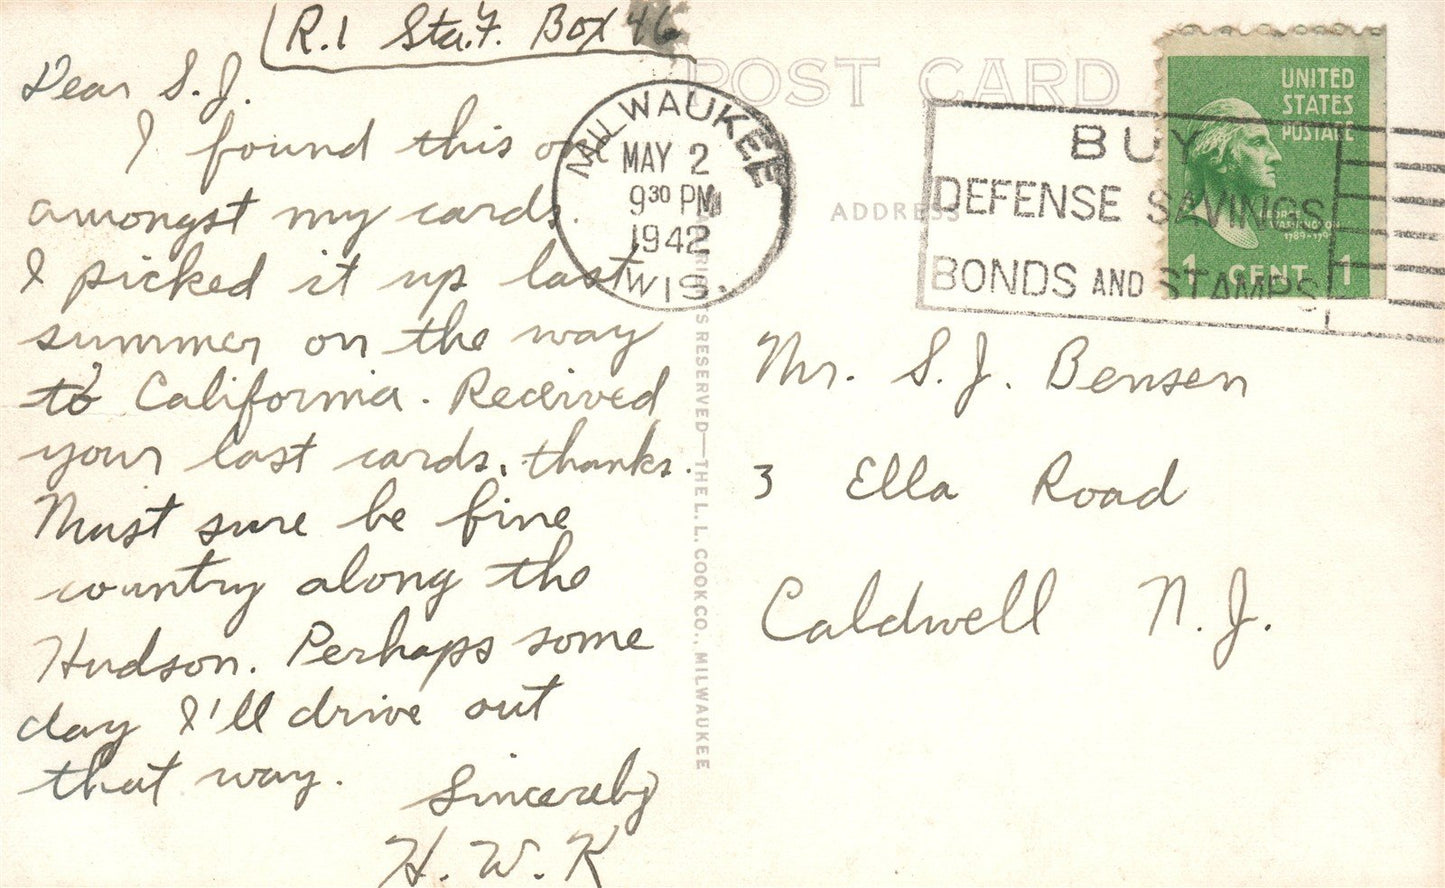 R.1 Sta.F. Box 46
Dear S.J.
I found this one
amongst my cards.
I picked it up last
summer on the way
to California. Received
your last cards, thanks.
Must sure be fine
country along the
Hudson. Perhaps some
day I'll drive out
that way.
Sincerely
H. W. K
POST CARD
MILWAUKEE
MAY 2
9 30 PM
1942
WIS.
BUY
DEFENSE SAVINGS
BONDS AND STAMPS
ADDRESS
UNITED
STATES
POSTAGE
GEORGE
WASHINGTON
1 CENT 1
Mr. S. J. Bensen
3 Ella Road
Caldwell N. J.
RESERVED—THE L. L. COOK CO., MILWAUKEE